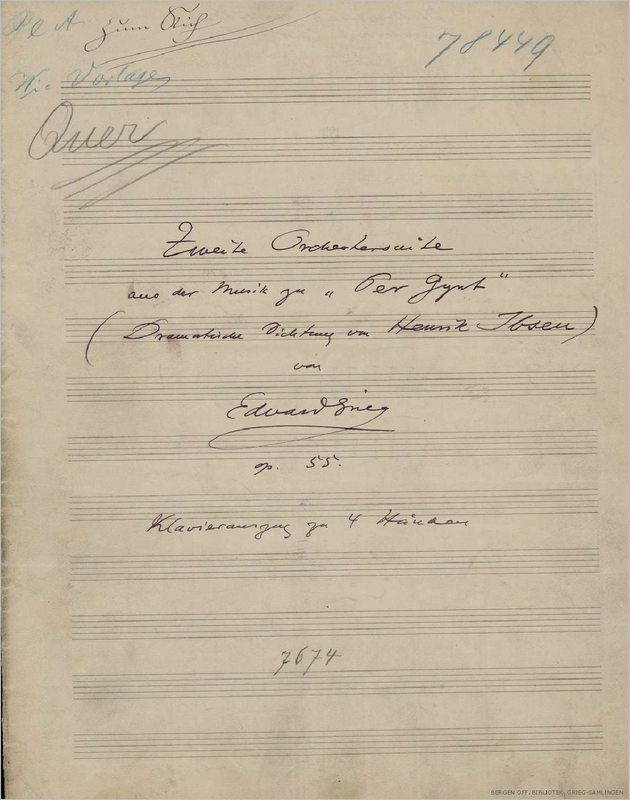 Pl A zum Stich
78449
Wie Vorlage
Quer
Zweite Orchestersuite
aus der Musik zu „Peer Gynt"
(Dramatische Dichtung von Henrik Ibsen)
von
Edvard Grieg
op. 55.
Klavierauszug zu 4 Händen
7674
BERGEN OFF. BIBLIOTEK, GRIEG-SAMLINGEN